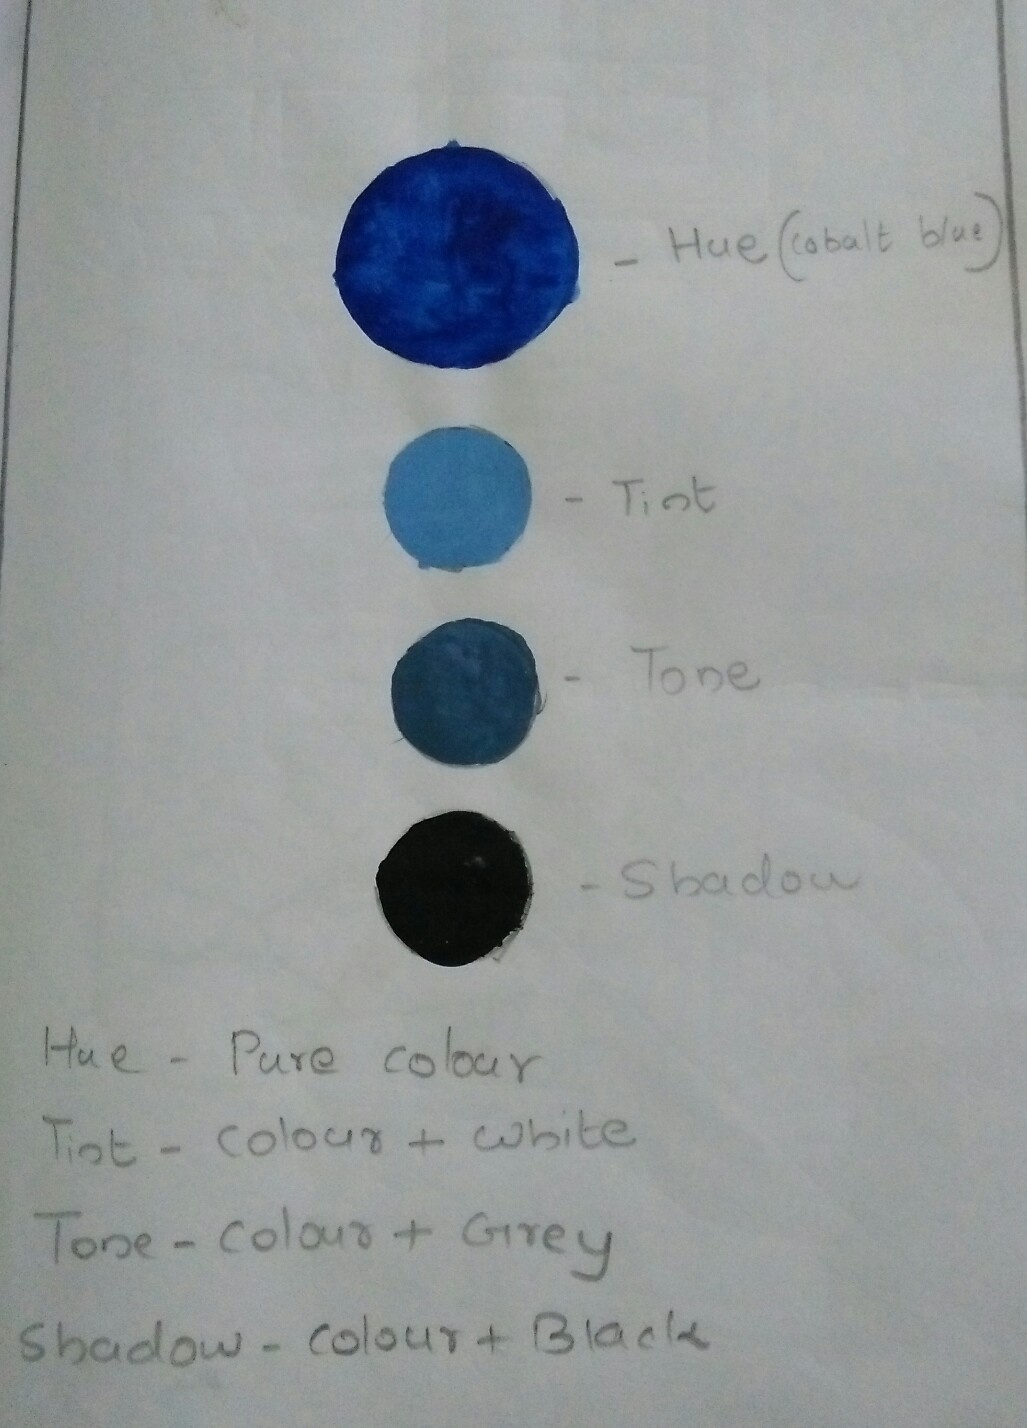 - Hue (cobalt blue)
- Tint
- Tone
- Shadow
Hue - Pure colour
Tint - colour + white
Tone - colour + Grey
Shadow - colour + Black